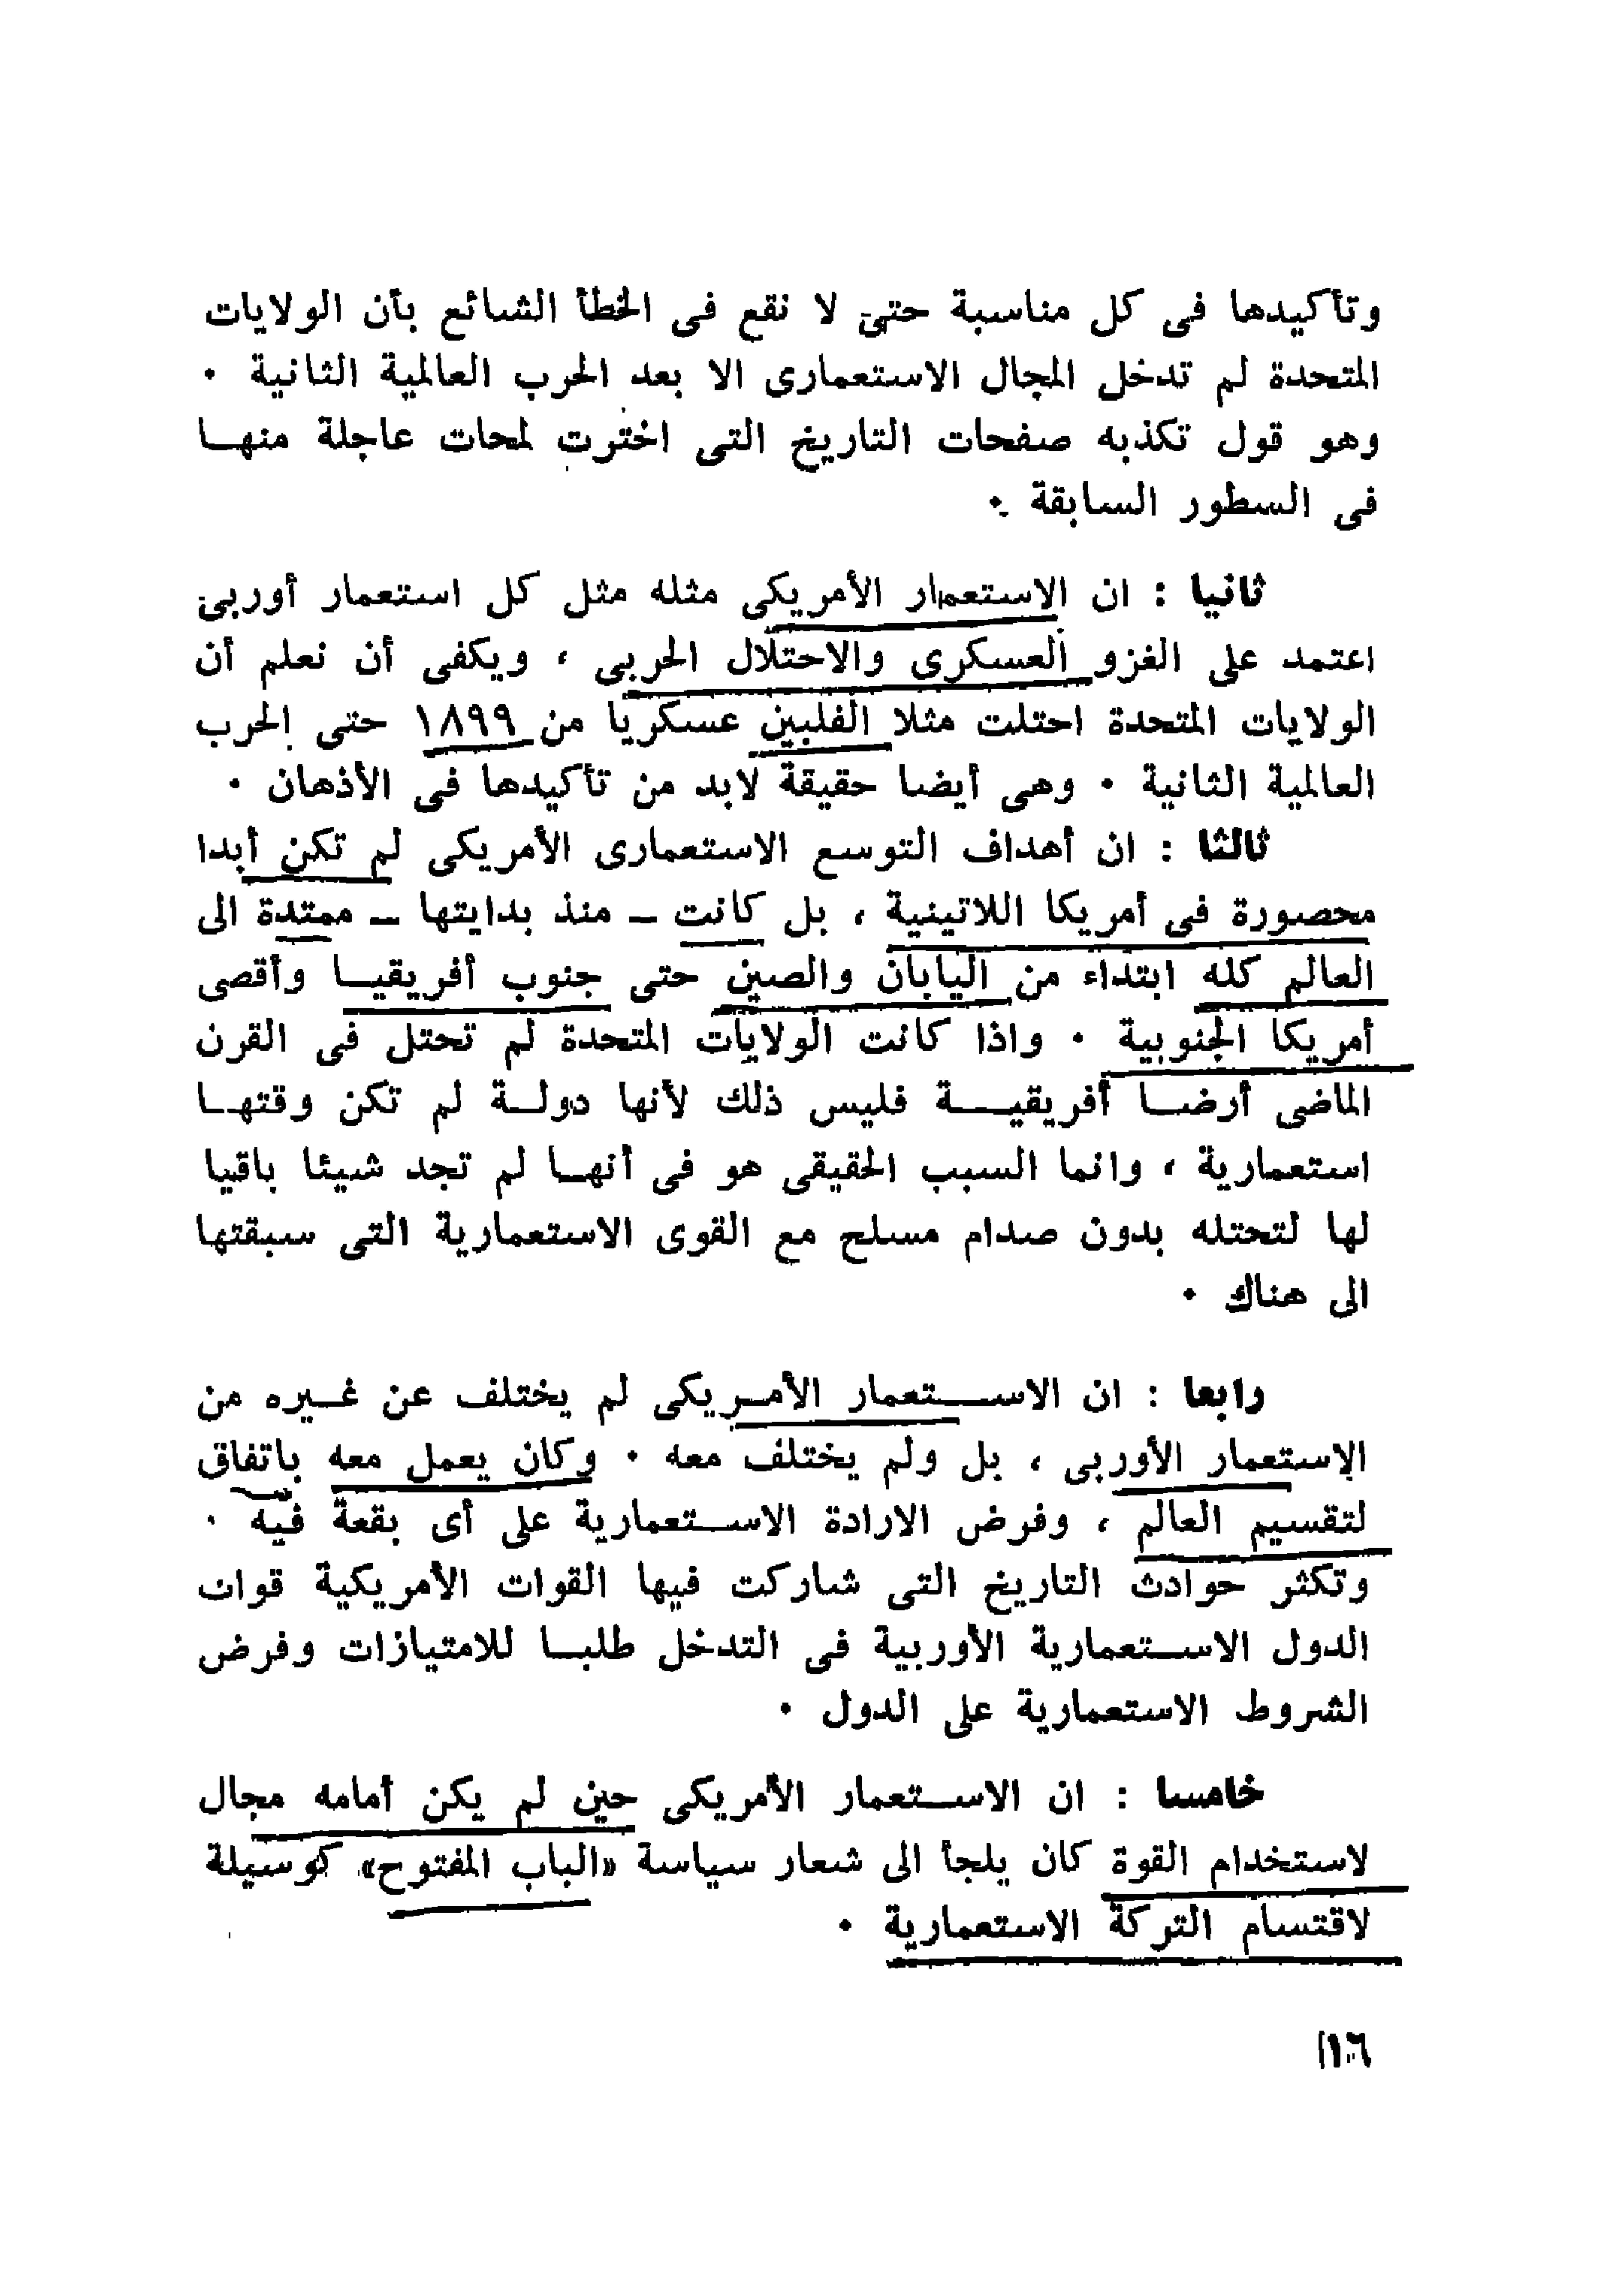 وتأكيدها فى كل مناسبة حتى لا نقع فى الخطأ الشائع بأن الولايات
المتحدة لم تدخل المجال الاستعمارى الا بعد الحرب العالمية الثانية ٠
وهو قول تكذبه صفحات التاريخ التى اخترت لمحات عاجلة منهـا
فى السطور السابقة ٠
ثانيا : ان الاستعمار الأمريكى مثله مثل كل استعمار أوربى
اعتمد على الغزو العسكرى والاحتلال الحربى ، ويكفى أن نعلم أن
الولايات المتحدة احتلت مثلا الفلبين عسكريا من ١٨٩٩ حتى الحرب
العالمية الثانية ٠ وهى أيضا حقيقة لابد من تأكيدها فى الأذهان ٠
ثالثا : ان أهداف التوسع الاستعمارى الأمريكى لم تكن أبدا
محصورة فى أمريكا اللاتينية ، بل كانت ــ منذ بدايتها ــ ممتدة الى
العالم كله ابتداء من اليابان والصين حتى جنوب أفريقيـا وأقصى
أمريكا الجنوبية ٠ واذا كانت الولايات المتحدة لم تحتل فى القرن
الماضى أرضـا أفريقيـة فليس ذلك لأنها دولـة لم تكن وقتهـا
استعمارية ، وانما السبب الحقيقى هو فى أنهـا لم تجد شيئا باقيا
لها لتحتله بدون صدام مسلح مع القوى الاستعمارية التى سبقتها
الى هناك ٠
رابعا : ان الاسـتعمار الأمـريكى لم يختلف عن غـيره من
الاستعمار الأوربى ، بل ولم يختلف معه ٠ وكان يعمل معه باتفاق
لتقسيم العالم ، وفرض الارادة الاسـتعمارية على أى بقعة فيه ٠
وتكثر حوادث التاريخ التى شاركت فيها القوات الأمريكية قوات
الدول الاسـتعمارية الأوربية فى التدخل طلبـا للامتيازات وفرض
الشروط الاستعمارية على الدول ٠
خامسا : ان الاسـتعمار الأمريكى حين لم يكن أمامه مجال
لاستخدام القوة كان يلجأ الى شعار سياسة «الباب المفتوح» كوسيلة
لاقتسام التركة الاستعمارية ٠
١٦